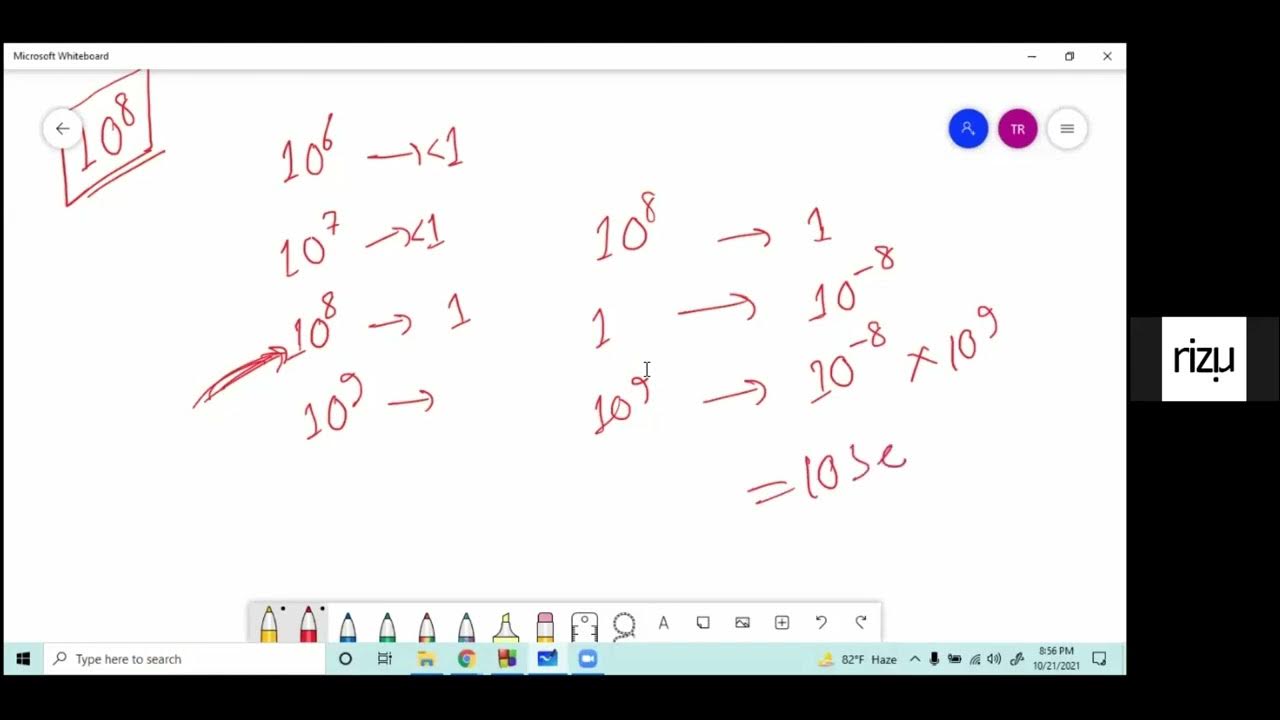 Microsoft Whiteboard
10^8
10^6 → <1
10^7 → <1
10^8 → 1
10^9 →
10^8 → 1
1 → 10^-8
10^9 → 10^-8 × 10^9
= 10 se
TR
rizu
A
Type here to search
82°F Haze
8:56 PM
10/21/2021